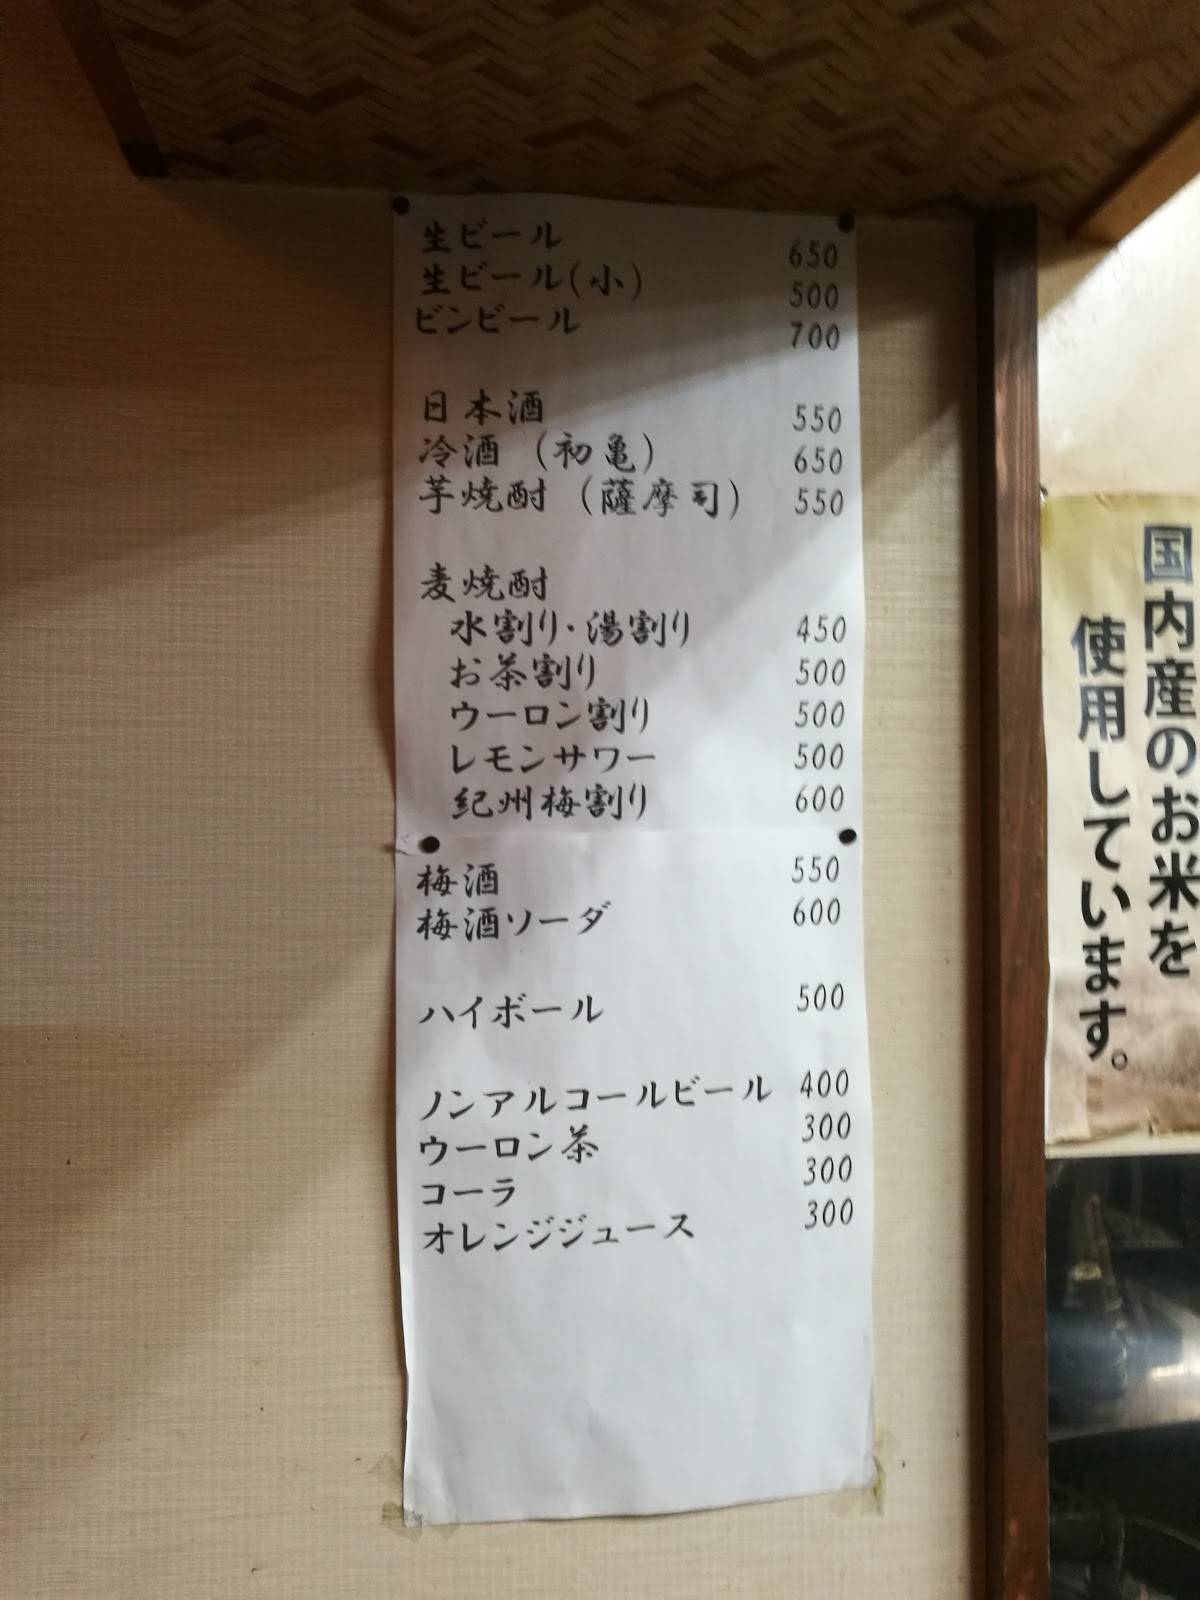 生ビール 650
生ビール(小) 500
ビンビール 700
日本酒 550
冷酒 (初亀) 650
芋焼酎 (薩摩司) 550
麦焼酎
水割り・湯割り 450
お茶割り 500
ウーロン割り 500
レモンサワー 500
紀州梅割り 600
梅酒 550
梅酒ソーダ 600
ハイボール 500
ノンアルコールビール 400
ウーロン茶 300
コーラ 300
オレンジジュース 300
国内産のお米を
使用しています。